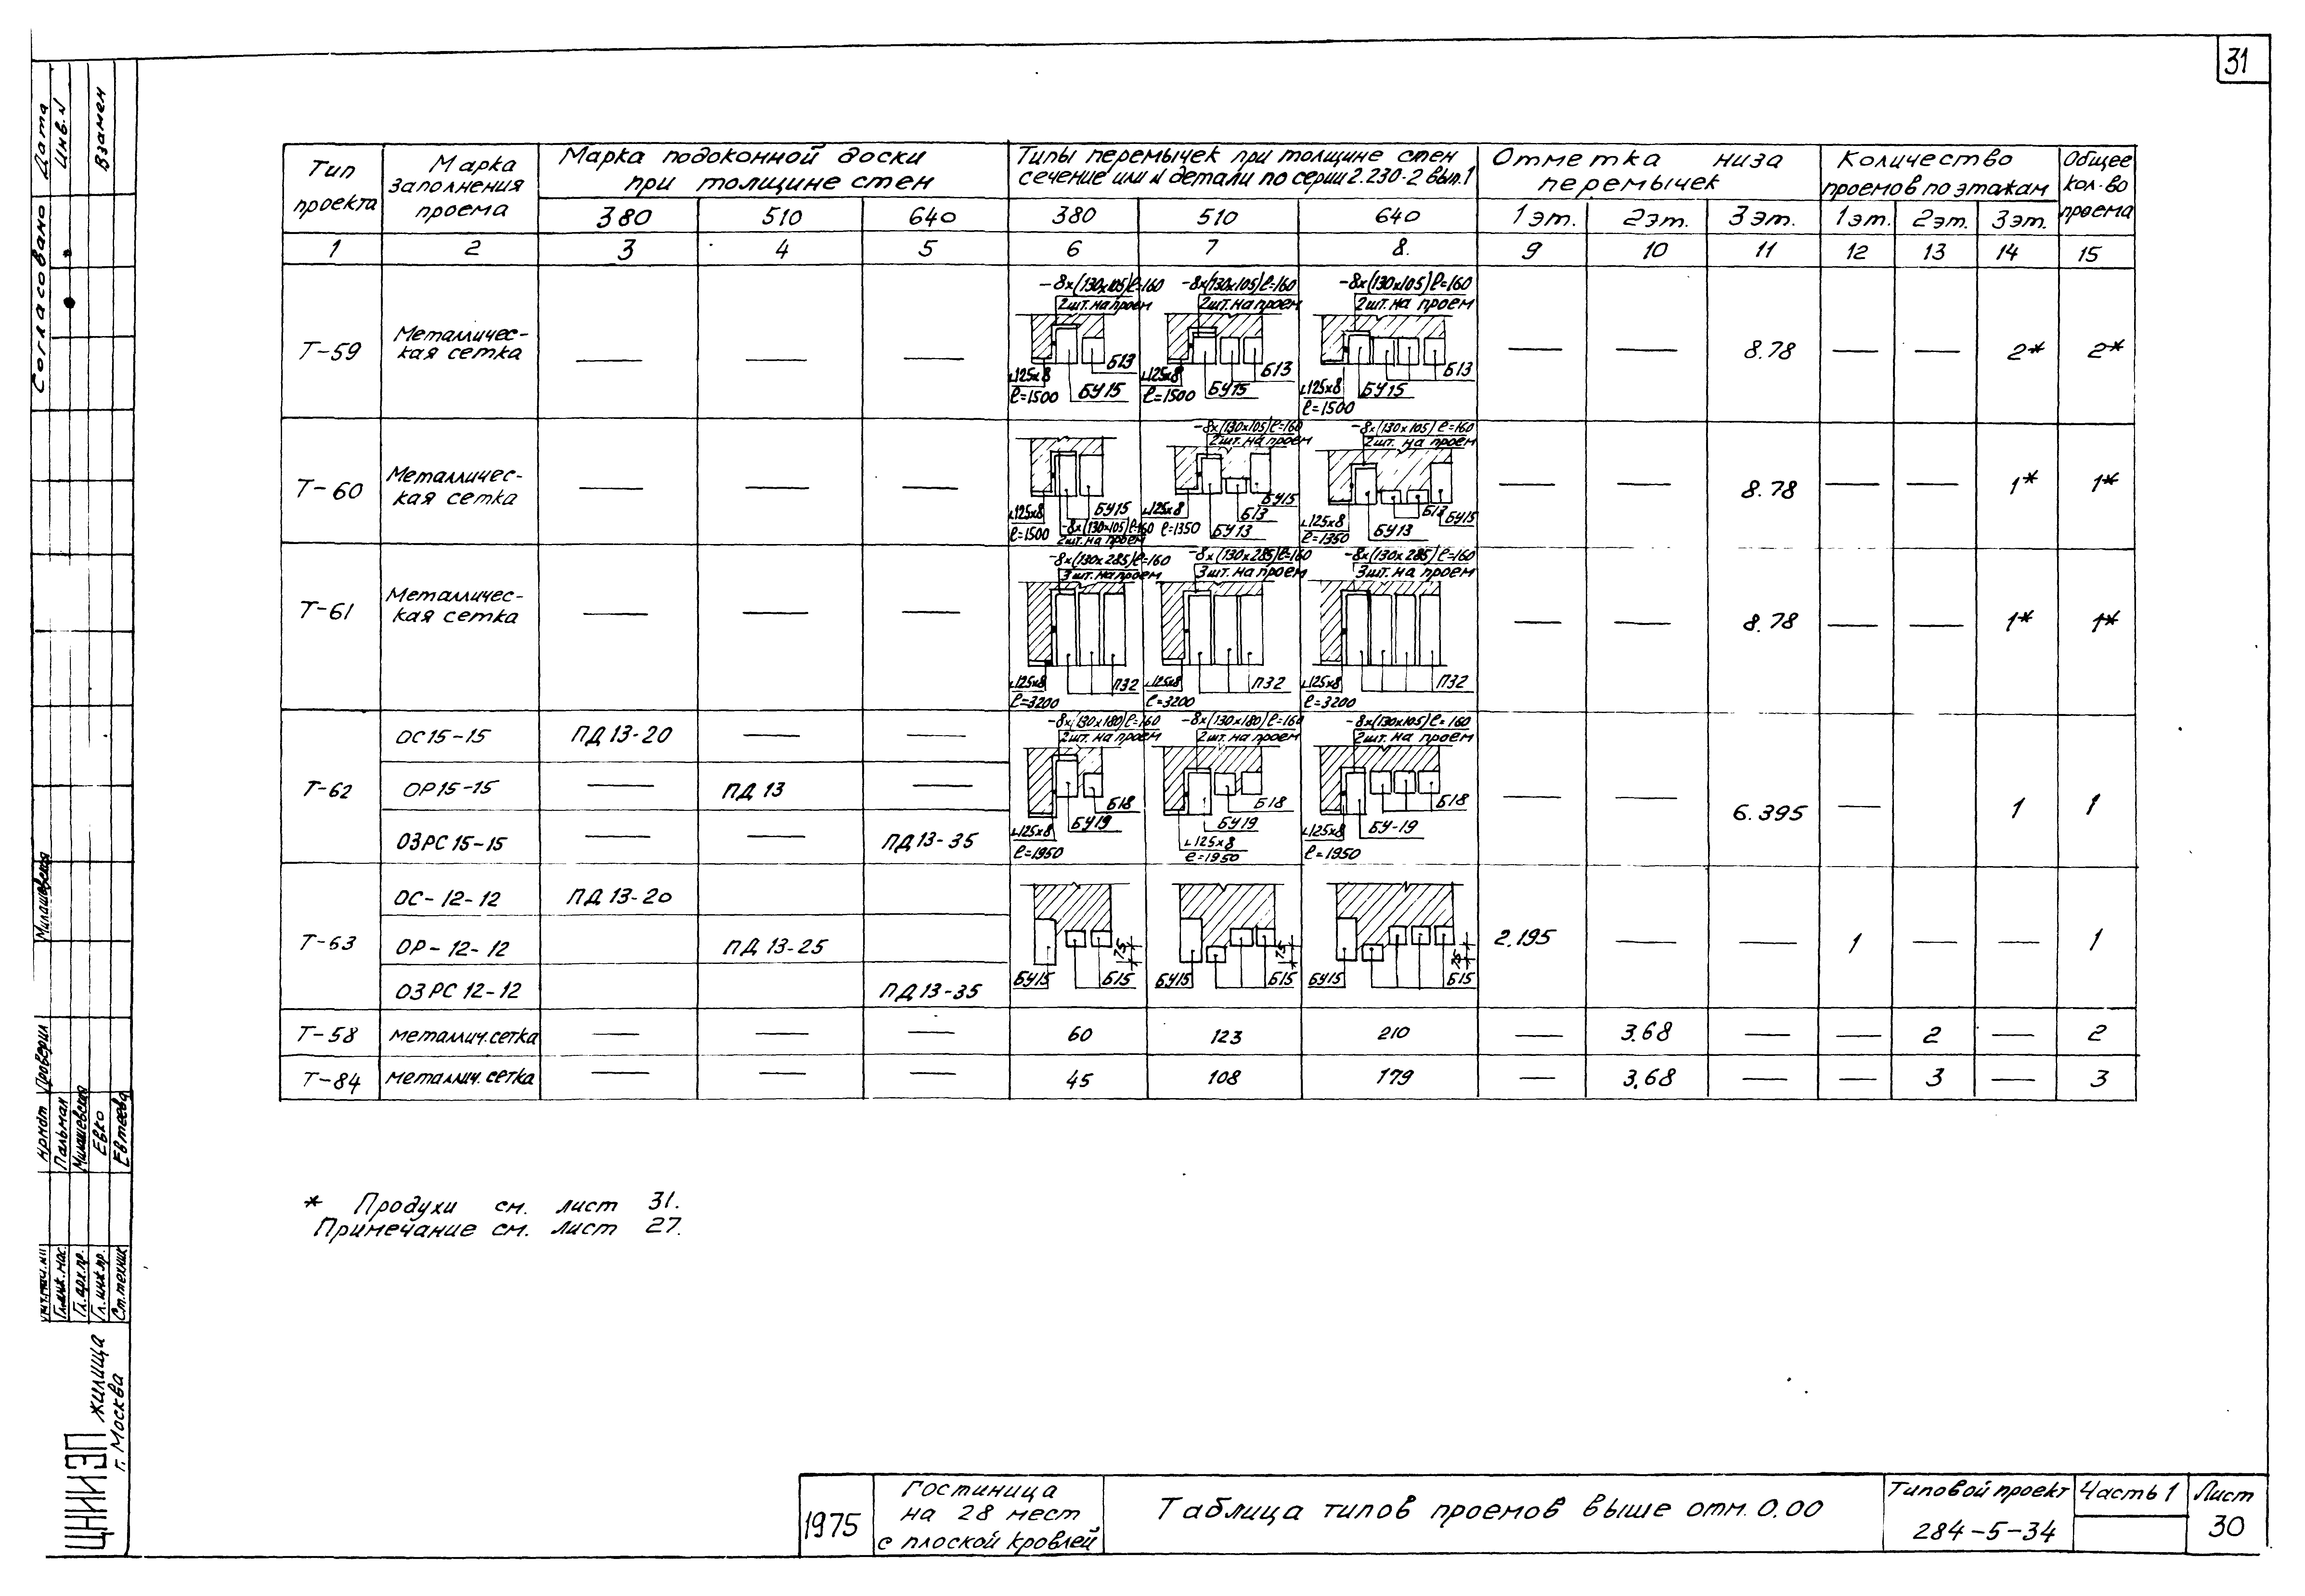 31
Тип проекта
Марка заполнения проема
Марка подоконной доски при толщине стен
Типы перемычек при толщине стен сечение или N детали по серии 2.230-2 вып.1
Отметка низа перемычек
Количество проемов по этажам
Общее кол-во проема
380 510 640 380 510 640 1эт. 2эт. 3эт. 1эт. 2эт. 3эт.
1 2 3 4 5 6 7 8. 9 10 11 12 13 14 15
Т-59 Металличес-
кая сетка — — —
-8х(130х105)ℓ=160 -8х(130х105)ℓ=160 -8х(130х105)ℓ=160
2шт.на проем 2шт.на проем 2шт.на проем
Б13 Б13 Б13
∟125х8 БУ15 ∟125х8 БУ15 ∟125х8 БУ15
ℓ=1500 ℓ=1500 ℓ=1500
— — 8.78 — — 2* 2*
Т-60 Металличес-
кая сетка — — —
-8х(130х105)ℓ=160 -8х(130х105)ℓ=160
2шт.на проем 2шт.на проем
∟125х8 БУ15 ∟125х8 Б13 БУ15 ∟125х8 Б13 БУ15
ℓ=1500 -8х(130х105)ℓ=160 ℓ=1350 БУ13 ℓ=1350 БУ13
2шт.на проем
— — 8.78 — — 1* 1*
Т-61 Металличес-
кая сетка — — —
-8х(130х285)ℓ=160 -8х(130х285)ℓ=160 -8х(130х285)ℓ=160
3шт.на проем 3шт.на проем 3шт.на проем
∟125х8 П32 ∟125х8 П32 ∟125х8 П32
ℓ=3200 ℓ=3200 ℓ=3200
— — 8.78 — — 1* 1*
Т-62
ОС15-15 ПД13-20 — —
ОР15-15 — ПД13 —
ОЗРС15-15 — — ПД13-35
-8х(130х180)ℓ=160 -8х(130х180)ℓ=160 -8х(130х105)ℓ=160
2шт.на проем 2шт.на проем 2шт.на проем
Б18 Б18 Б18
∟125х8 БУ19 БУ19 ∟125х8 БУ-19
ℓ=1950 ∟125х8 ℓ=1950
ℓ=1950
— — 6.395 — 1 1
Т-63
ОС-12-12 ПД13-20
ОР-12-12 ПД13-25
ОЗРС12-12 ПД13-35
75 75 75
БУ15 Б15 БУ15 Б15 БУ15 Б15
2.195 — — 1 — — 1
Т-58 металлич.сетка — — — 60 123 210 — 3.68 — — 2 — 2
Т-84 металлич.сетка — — — 45 108 179 — 3.68 — — 3 — 3
* Продухи см. лист 31.
Примечание см. лист 27.
1975
Гостиница
на 28 мест
с плоской кровлей
Таблица типов проемов выше отм. 0.00
Типовой проект
284-5-34
Часть 1
Лист
30
Согласовано
Дата
Инв.N
Взамен
Милашевская
Проверил
Пальман
Милашевская
Евко
Евтеева
Гл.инж.мас.
Гл.арх.пр.
Гл.инж.пр.
Ст.техник
ЦНИИЭП жилища
г. Москва